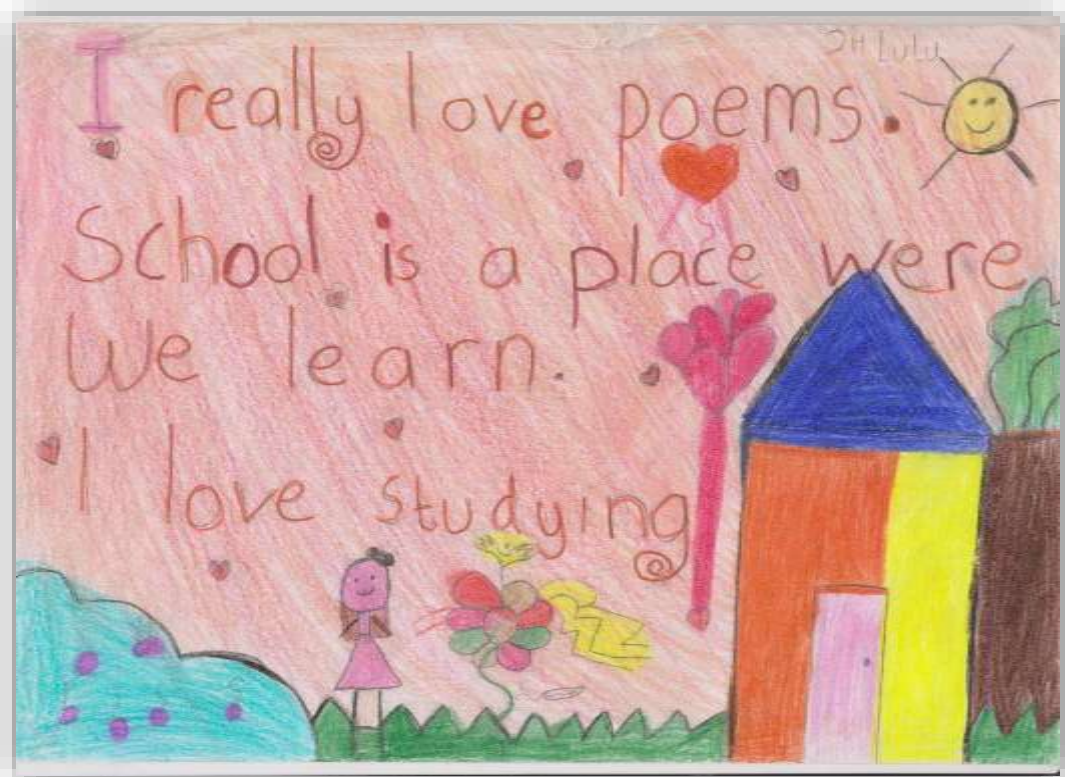 2H Lulu
I really love poems.
School is a place were
We learn.
I love studying